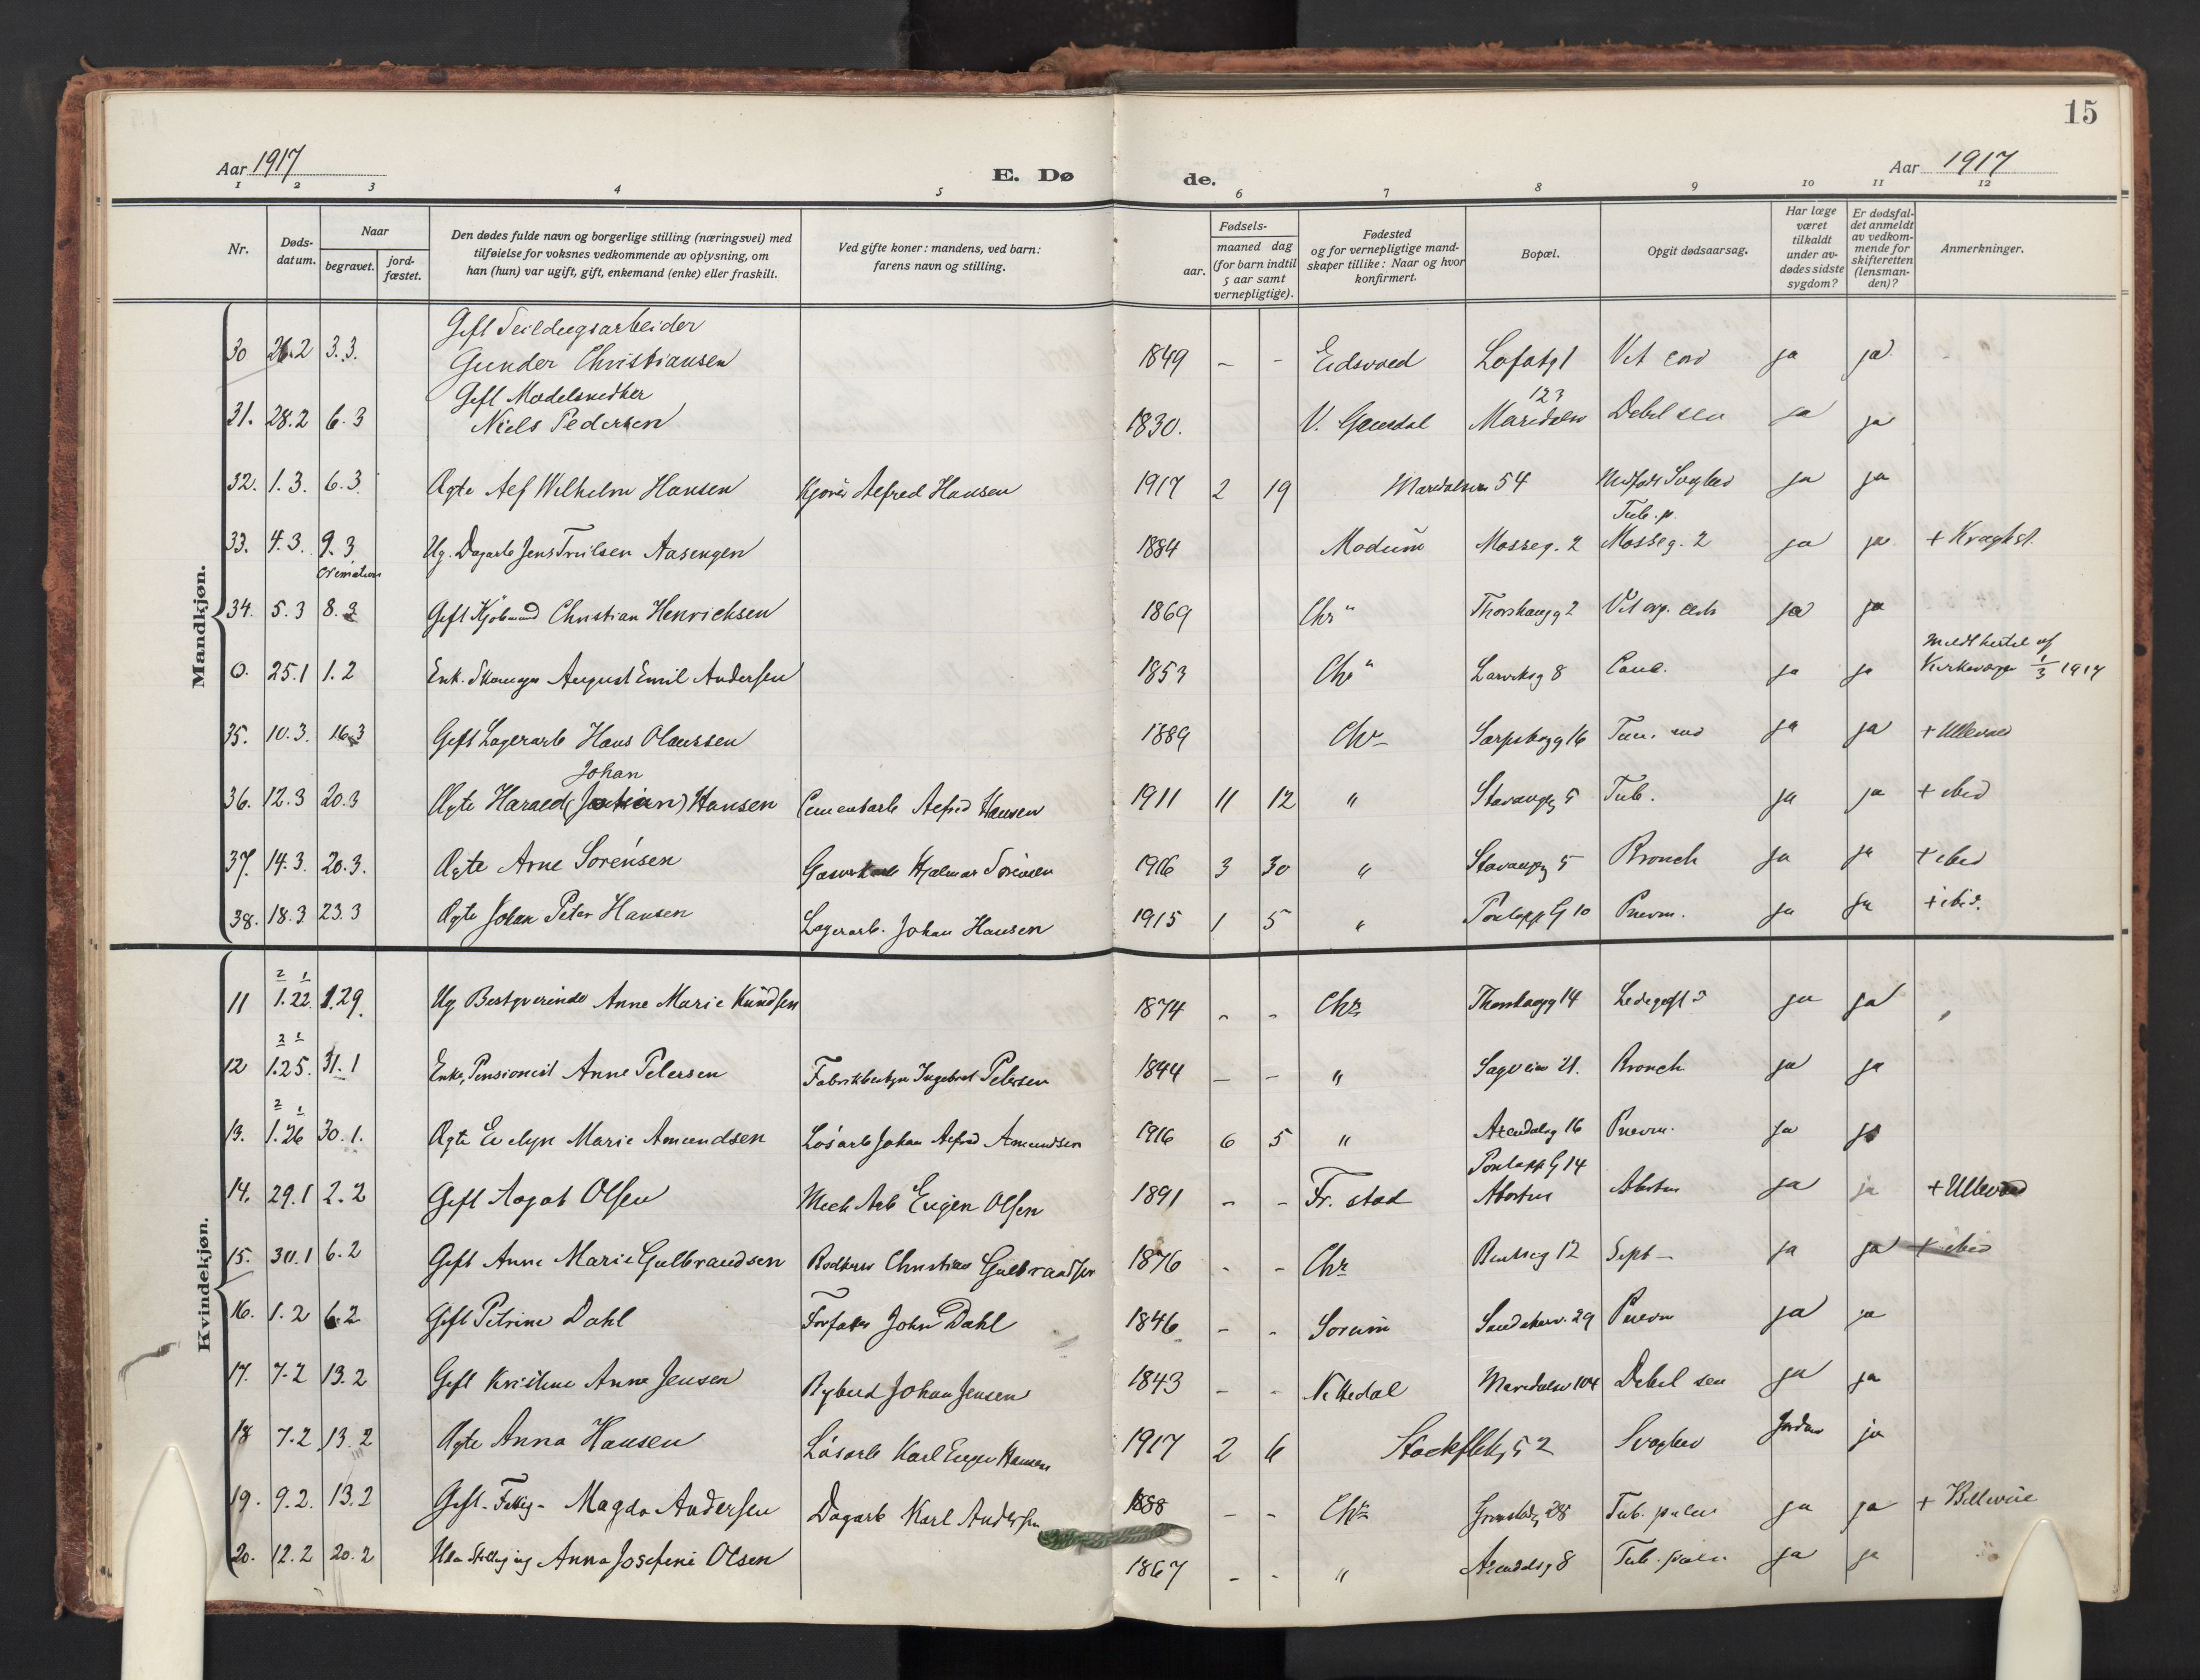 15
Aar 1917
E. Dø
de.
Aar 1917
1 2 3 4 5 6 7 8 9 10 11 12
Nr.
Døds-
datum.
Naar
begravet.
jord-
fæstet.
Den dødes fulde navn og borgerlige stilling (næringsvei) med
tilføielse for voksnes vedkommende av oplysning, om
han (hun) var ugift, gift, enkemand (enke) eller fraskilt.
Ved gifte koner: mandens, ved barn:
farens navn og stilling.
Fødsels-
aar.
maaned dag
(for barn indtil
5 aar samt
vernepligtige).
Fødested
og for vernepligtige mand-
skaper tillike: Naar og hvor
konfirmert.
Bopæl.
Opgit dødsaarsag.
Har læge
været
tilkaldt
under av-
dødes sidste
sygdom?
Er dødsfal-
det anmeldt
av vedkom-
mende for
skifteretten
(lensman-
den)?
Anmerkninger.
Mandkjøn.
Gift Seildugsarbeider
30 26.2 3.3. Gunder Christiansen 1849 - - Eidsvold Lofotg 1 Vit cord ja ja
Gift Modelsnedker 123
31. 28.2 6.3 Niels Pedersen 1830. V. Gausdal Maridalsv Debil sen ja ja
32. 1.3. 6.3 Ægte Alf Wilhelm Hansen Alfred Hansen 1917 2 19 Maridalsv 54 Medfødt Svaghed ja ja
Tub. p.
33. 4.3. 9.3 Ug. Dagarb Jens Trulsen Aasengen 1884 Modum Mosseg. 2 Mosseg. 2 ja ja
Cremation
34. 5.3 8.3 Gift Kjøbmand Christian Henricksen 1869 Chr Thorshaugg 2 ja ja
Meldt hertil af
0. 25.1 1.2 Enk. August Emil Andersen 1853 Chr Larviksg 8 Canc. ja ja Kirkeverge 1/3 1917
35. 10.3. 16.3 Gift Lagerarb Hans Olaussen 1889 Chr Sarpsborgg 16 ja ja + Ullevaal
Johan
36. 12.3 20.3 Ægte Harald Hansen Cementarb Alfred Hansen 1911 11 12 " Stavangg 5 Tub. ja ja + ibid
37. 14.3. 20.3. Ægte Arne Sorensen Gasverkarb Hjalmar Sorensen 1916 3 30 " Stavangg 5 Bronch ja ja + ibid
38. 18.3 23.3 Ægte Johan Peter Hansen Lagerarb. Johan Hansen 1915 1 5 " Pontoppg 10 Pnevm. ja ja + ibid.
Kvindekjøn.
2 1
11 1.22. 1.29. Ug Bestyrerinde Anne Marie Knudsen 1874 - - Chr Thorshaugg 14 Ledegigt ja ja
2 1
12 1.25. 31.1 Enke, Pensionist Anne Petersen Fabrikbestyr Ingebret Petersen 1844 - - " Sagveien 21. Bronch ja ja
2 1
13. 1.26 30.1. Ægte Evelyn Marie Amundsen Løsarb Johan Alfred Amundsen 1916 6 5 " Arendalsg 16 Pnevm. ja ja
Pontoppg 14
14. 29.1 2.2 Gift Aagot Olsen Mech Arb Eugen Olsen 1891 - - Fr. stad Abortus Abortus ja ja + Ullevaal
15. 30.1 6.2 Gift Anne Marie Gulbrandsen Bødkersv Christian Gulbrandsen 1876 - - Chr Bentseg 12 Sept ja ja + ibid
16. 1.2 6.2 Gift Petrine Dahl John Dahl 1846 - - Sorum Sandakerv. 29 Pnevm ja ja
17. 7.2 13.2 Gift Kristine Anna Jensen Bybud Johan Jensen 1843 - - Nittedal Maridalsv 104 Debil sen ja ja
18 7.2 13.2 Ægte Anna Hansen Løsarb Karl Eugen Hansen 1917 2 6 Stockfletsg 52 Svaghed Jordm ja
19. 9.2. 13.2 Gift. Magda Andersen Dagarb Karl Andersen 1888 - - Chr Grimstadg 28 Tub. pulm ja ja +
20. 12.2 20.2 Anna Josefine Olsen 1867 - - " Arendalsg 8 Tub. pulm ja ja